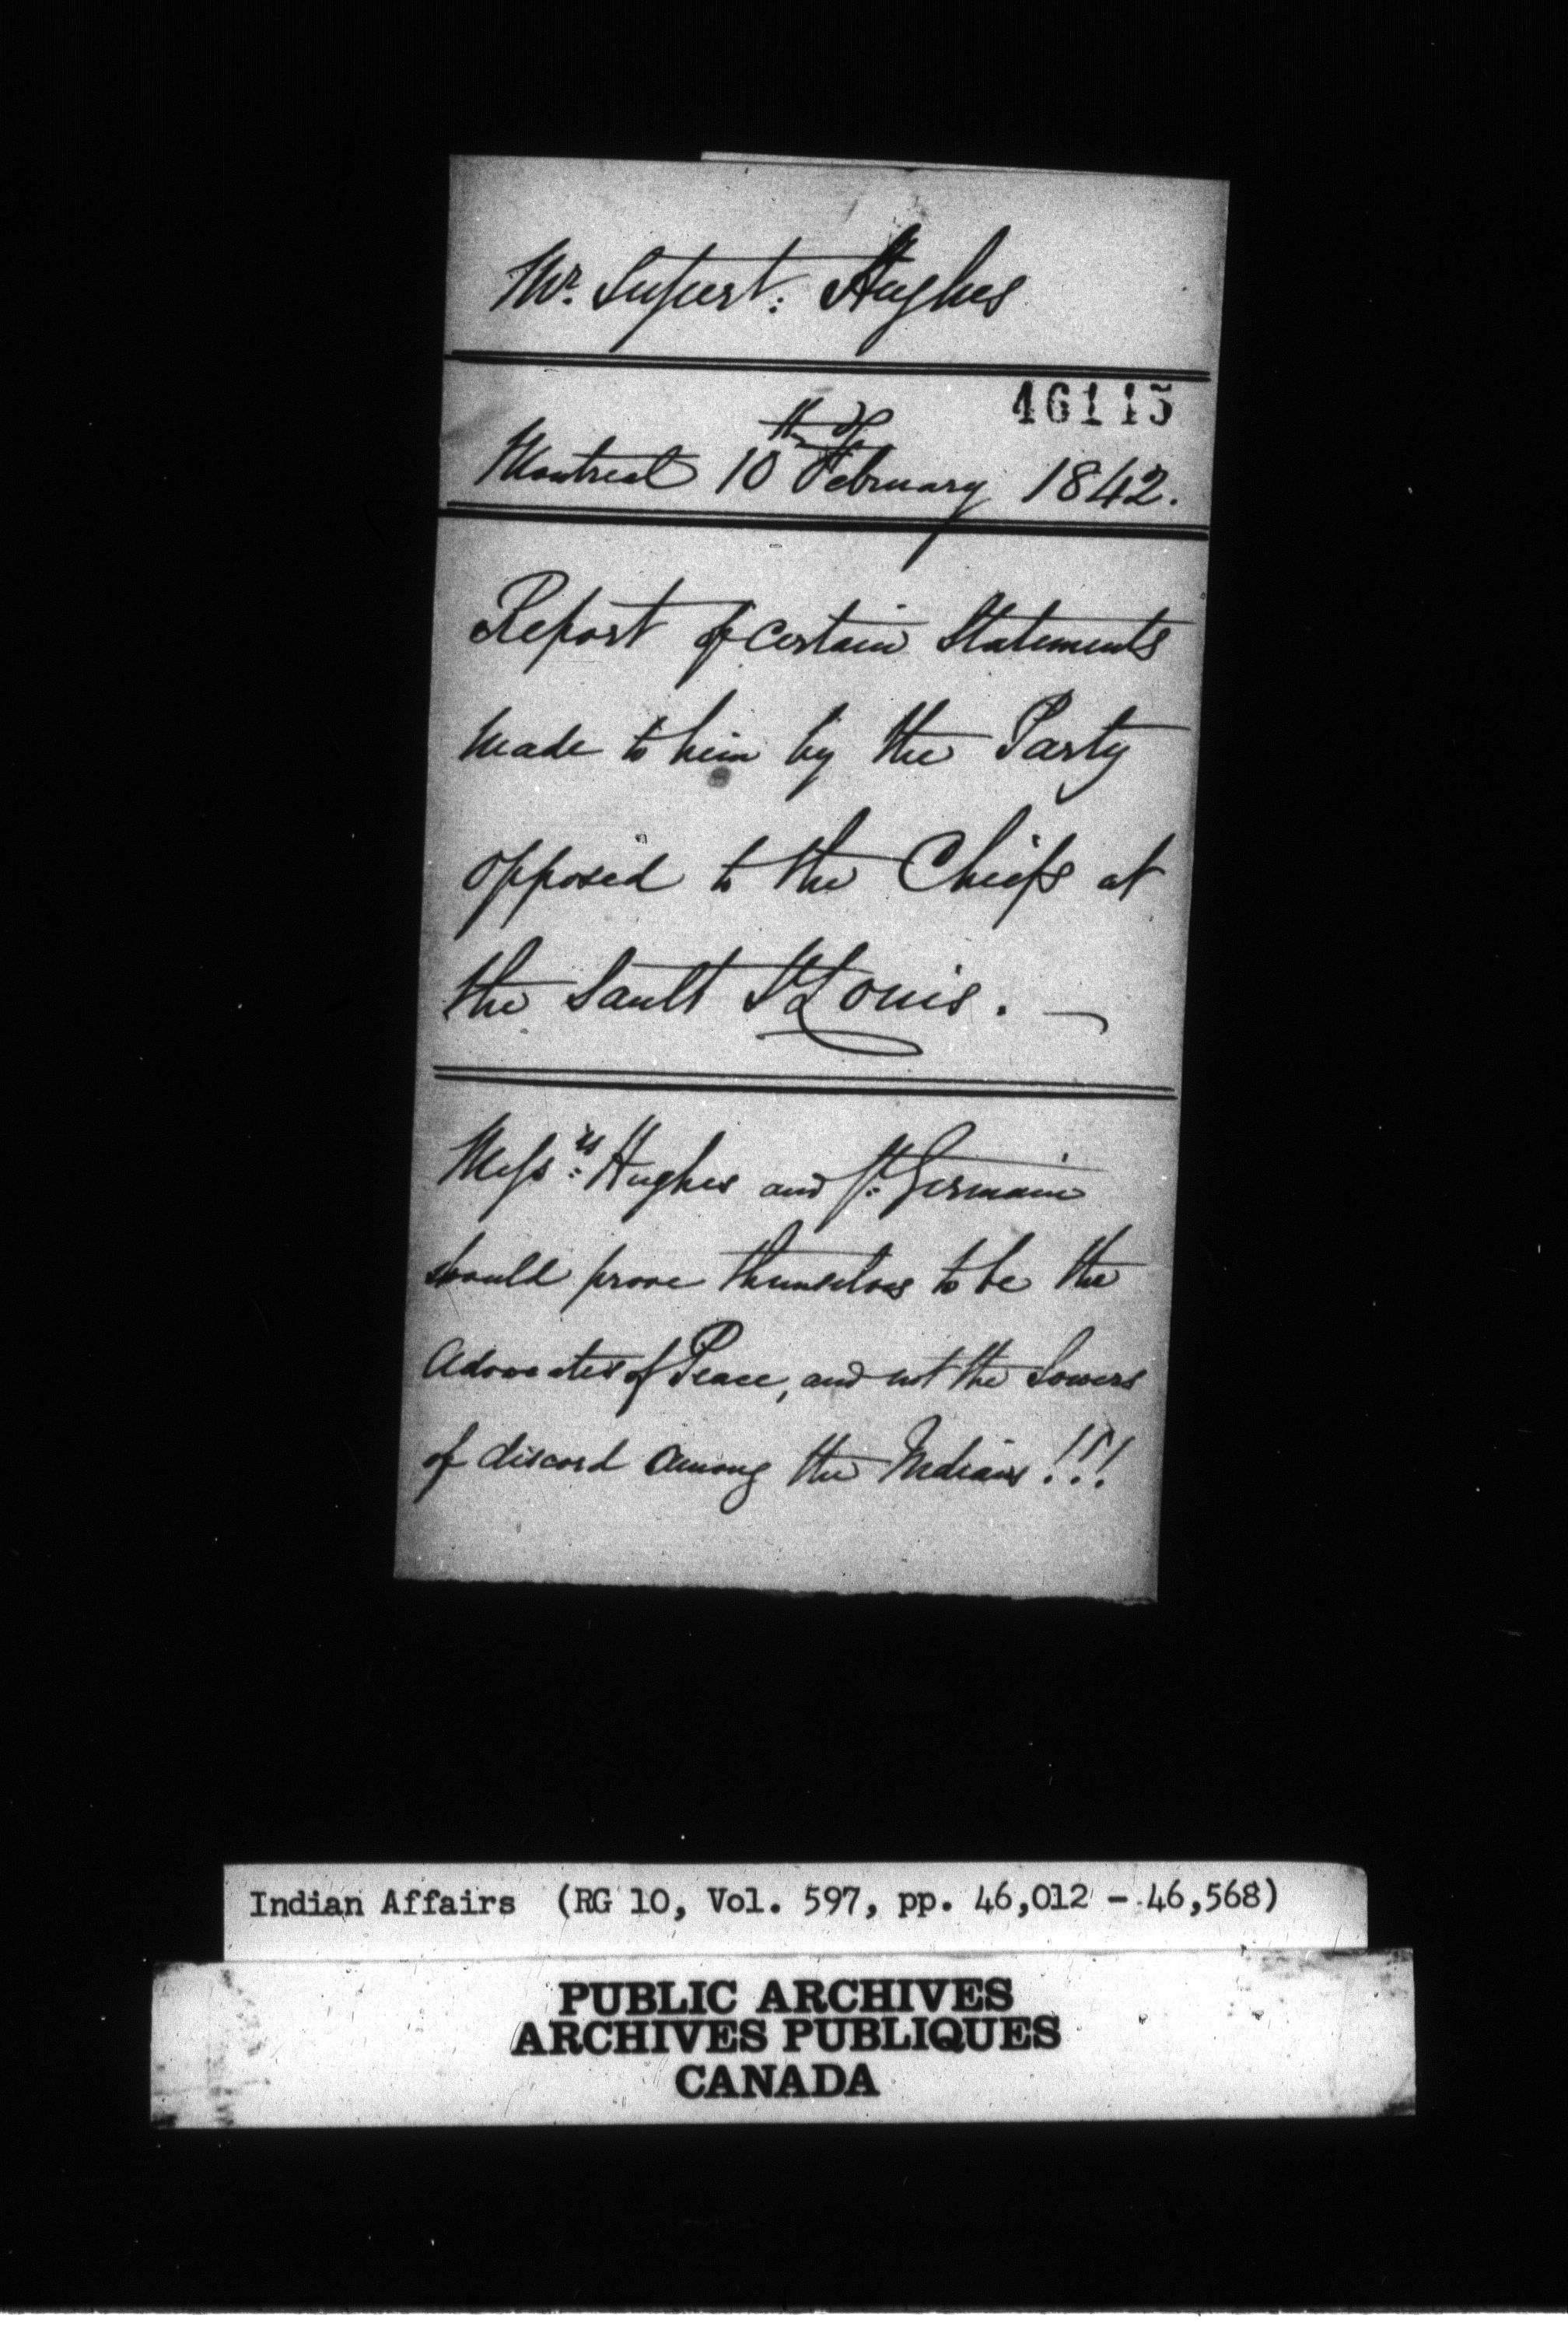 Mr. Supert: Hughes
46115
Montreal 10th February 1842.
Report of certain Statements
made to him by the Party
opposed to the Chiefs at
the Sault St Louis. —
Messrs: Hughes and St. Germain
should prove themselves to be the
Advocates of Peace, and not the Sowers
of discord among the Indians!!!
Indian Affairs (RG 10, Vol. 597, pp. 46,012 - 46,568)
PUBLIC ARCHIVES
ARCHIVES PUBLIQUES
CANADA